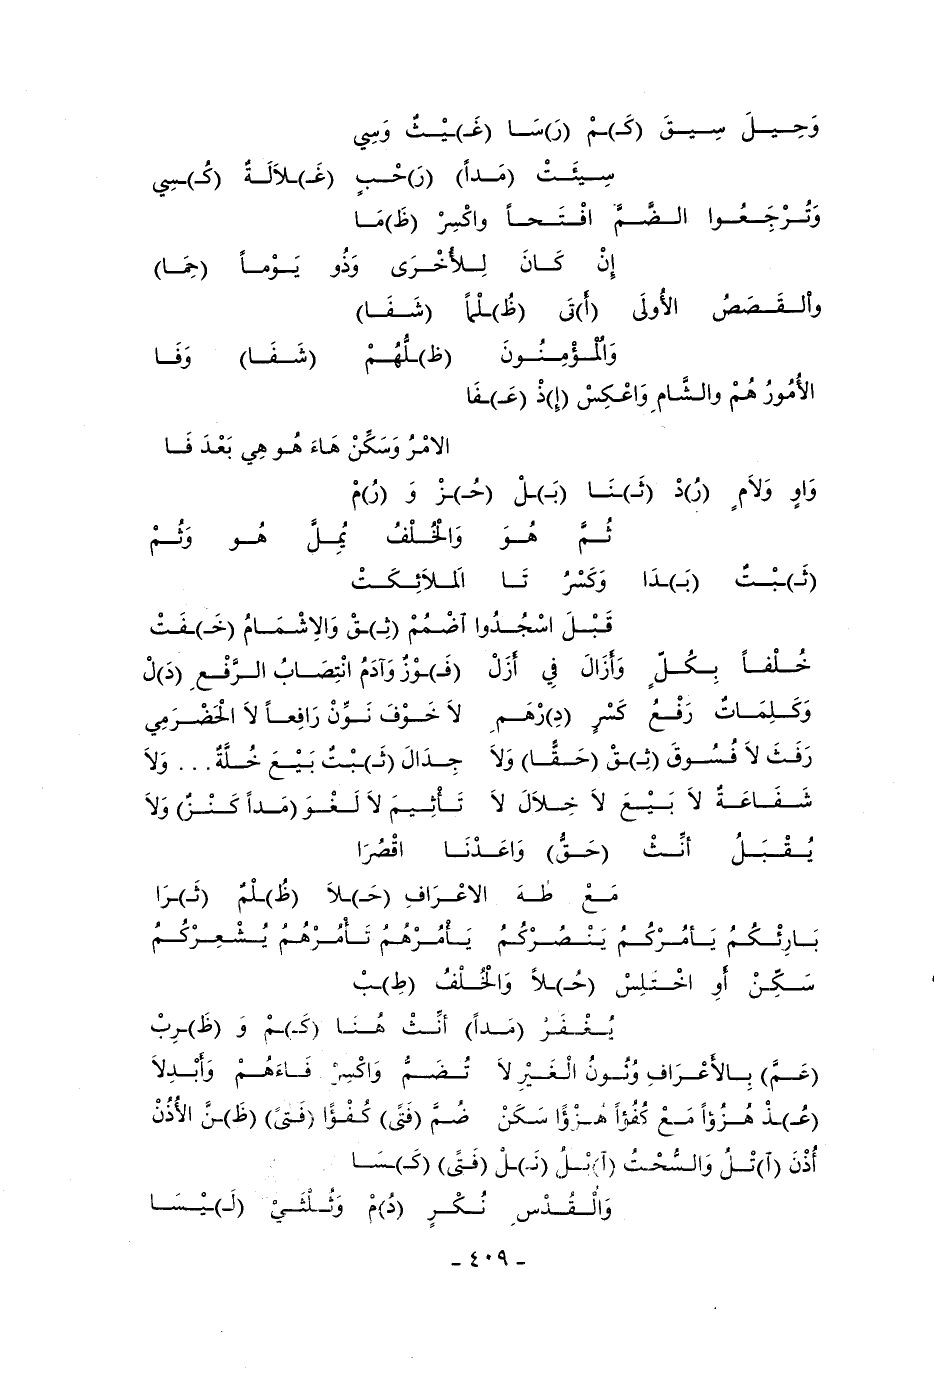 وَحِيلَ سِيقَ (كَ)مْ (رَ)سَا (غَ)يْثٌ وَسِي
سِيئَتْ (مَـداً) (رَ)حْبٍ (غَـ)لَالَةٌ (كُـ)سِي
وَتُرْجَعُوا الضَّمُّ افْتَحاً وَاكْسِرْ (ظَ)مَا
إِنْ كَانَ لِلْأُخْرَى وَذُو يَوْماً (حِمَا)
وَالْقَصَصُ الْأُولَى (أَ)تَى (ظُـ)لْماً (شَـفَا)
وَالْمُؤْمِنُونَ (ظِـ)لُّهُمْ (شَـفَا) وَفَا
الْأُمُورُ هُمْ وَالشَّامِ وَاعْكِسْ (إِ)ذْ (عَـ)فَا
الامْرُ وَسَكِّنْ هَاءَ هُو هِي بَعْدَ فَا
وَاوٍ وَلَامٍ (رُ)دْ (ثَـ)نَا (بَـ)لْ (حُـ)زْ وَ (رُ)مْ
ثُمَّ هُوَ وَالْخُلْفُ يُمِلَّ هُو وَثُمْ
(ثَـ)بْتٌ (بَـ)دَا وَكَسْرُ تَا الْمَلَائِكَتْ
قَبْلَ اسْجُدُوا اضْمُمْ (ثِـ)قْ وَالِاشْمَامُ (خَـ)فَتْ
خُلْفاً بِكُلٍّ وَأَزَالَ فِي أَزَلّْ (فَـ)وْزٌ وَآدَمُ انْتِصَابُ الرَّفْعِ (دَ)لّْ
وَكَلِمَاتٌ رَفْعُ كَسْرٍ (دِ)رْهَمِ لَا خَوْفَ نَوِّنْ رَافِعاً لَا الْحَضْرَمِي
رَفَثَ لَا فُسُوقَ (ثِـ)قْ (حَـقًّا) وَلَا جِدَالَ (ثَـ)بْتٌ بَيْعَ خُلَّةٌ... وَلَا
شَفَاعَةٌ لَا بَيْعَ لَا خِلَالَ لَا تَأْثِيمَ لَا لَغْوَ (مَـداً كَـنْزٌ) وَلَا
يُقْبَلُ أَنِّثْ (حَـقٌّ) وَاعَدْنَا اقْصُرَا
مَعْ طَهَ الاعْرَافِ (حَـ)لَا (ظُـ)لْمٌ (ثَـ)رَا
بَارِئِكُمْ يَأْمُرْكُمْ يَنْصُرْكُمْ يَأْمُرْهُمْ تَأْمُرْهُمْ يُشْعِرْكُمْ
سَكِّنْ أَوِ اخْتَلِسْ (حُـ)لاً وَالْخُلْفُ (طِـ)بْ
يُغْفَرْ (مَـداً) أَنِّثْ هُنَا (كَـ)مْ وَ (ظَ)رِبْ
(عَـمَّ) بِالْأَعْرَافِ وَنُونُ الْغَيْرِ لَا تُضَمُّ وَاكْسِرْ فَاءَهُمْ وَأَبْدِلَا
(عُـ)دْ هُزُؤاً مَعْ كُفُؤاً هُزْؤًا سَكَنْ ضُمَّ (فَتًى) كُفْؤًا (فَتًى) (ظَ)نَّ الْأُذُنْ
أُذْنَ (ا)تْلُ وَالسُّحْتُ (ا)بْلُ (نَـ)لْ (فَتًى) (كَـ)سَا
وَالْقُدْسِ نُكْرٍ (دُ)مْ وَثُلْثَيْ (لَـ)بِسَا
ـ ٤٠٩ ـ